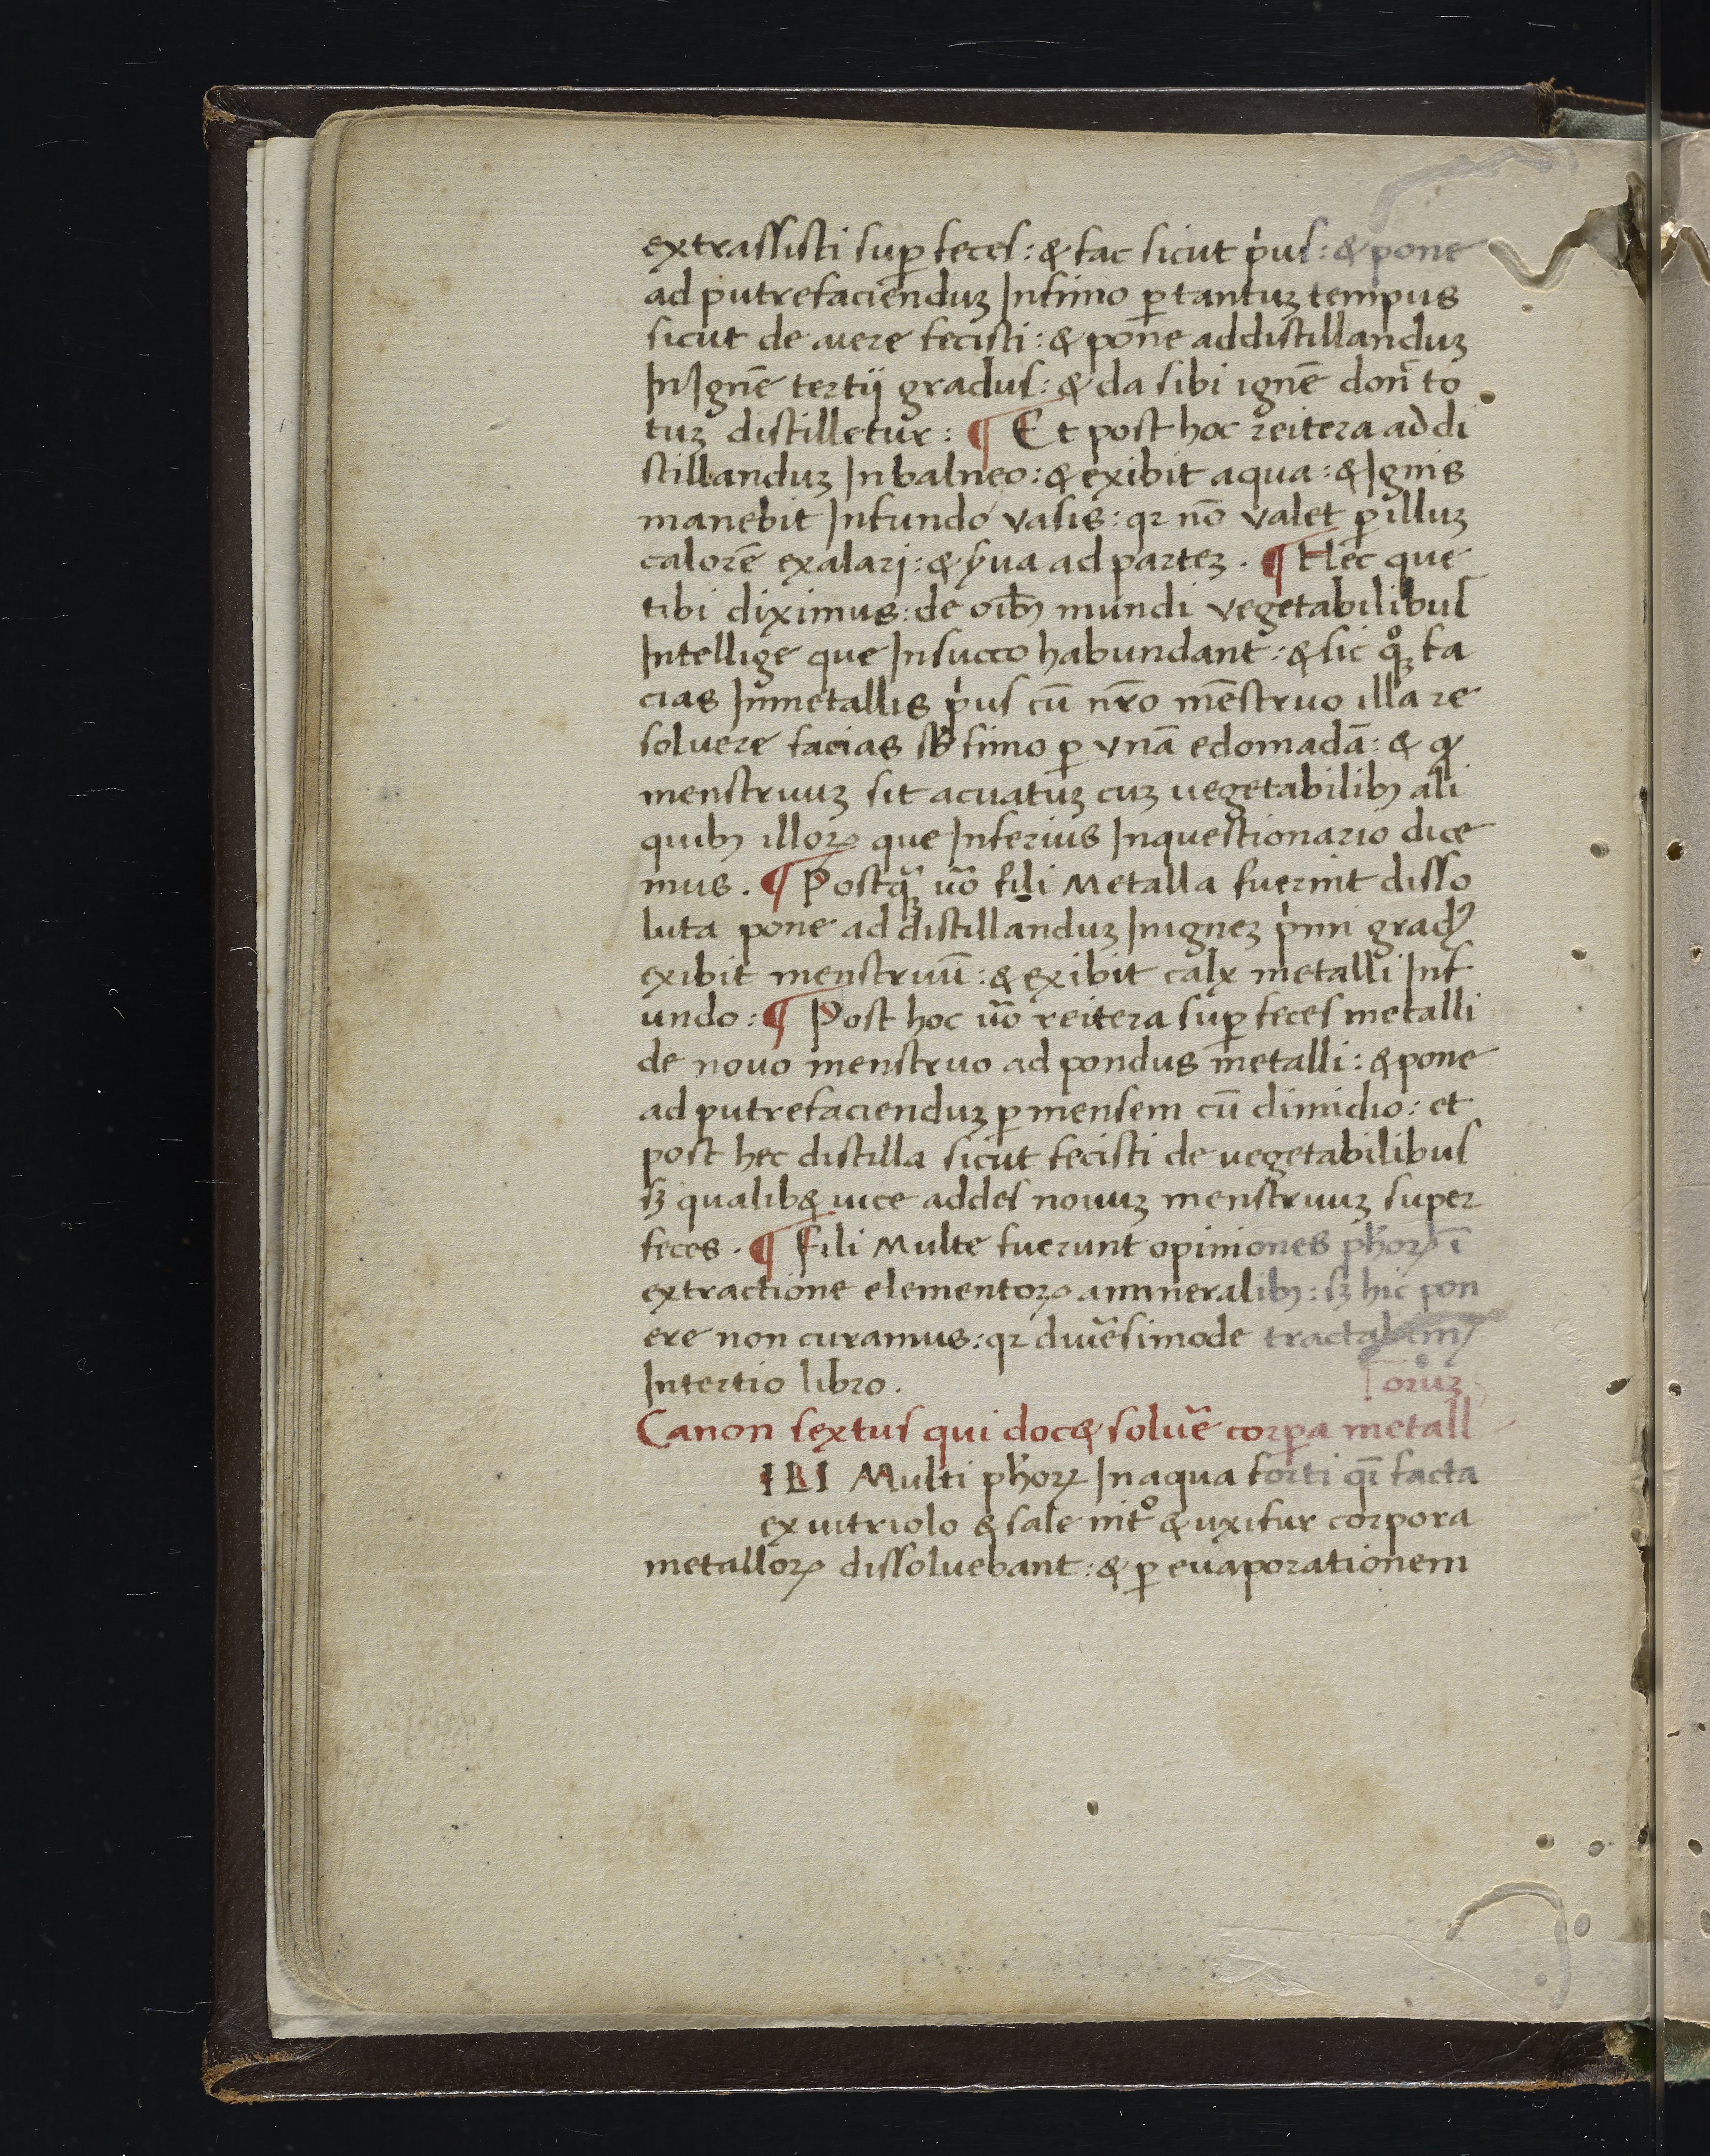 extrassisti suꝑ feces: & fac sicut pͥus: & pone
ad putrefacienduꝫ Infimo ꝑ tantuꝫ tempus
sicut de aere fecisti: & pone addistillanduꝫ
InIgnē tertij gradus: & da sibi ignē donͣ to
tuꝫ distilletur: ¶ Et post hoc reitera addi
stillanduꝫ Inbalneo: & exibit aqua: & Ignis
manebit Infundo vasis: qꝛ nō valet ꝑ illuꝫ
calorē exalari: & sͥua ad parteꝫ. ¶ Hec que
tibi diximus: de oībꝫ mundi vegetabilibus
Intellige que Insucco habundant: & sic qͦꝫ fa
cias Inmetallis pͥus cū nr̄o mēstruo illa re
soluere facias sb̄ fimo ꝑ vnā edomadā: & ꝙ
menstruuꝫ sit acuatuꝫ cuꝫ uegetabilibꝫ ali
quibꝫ illoꝝ que Inferius Inquestionario dice
mus. ¶ Postqͣꝫ uō fili Metalla fuerint disso
luta pone ad distillanduꝫ Inigneꝫ pͥmi gradꝰ
exibit menstruū: & exibit calx metalli Inf
undo: ¶ Post hoc uō reitera suꝑ feces metalli
de nouo menstruo ad pondus metalli: & pone
ad putrefacienduꝫ ꝑ mensem cū dimidio: et
post hec distilla sicut fecisti de uegetabilibus
sꝫ qualibꝫ uice addes nouuꝫ menstruuꝫ super
feces. ¶ Fili Multe fuerunt opiniones ph̄oꝝ ī
extractione elementoꝝ amineralibꝫ: sꝫ hic pon
ere non curamus: qꝛ diuēsimode tractabimꝰ
Intertio libro.
oruꝫ
Canon sextus qui doc& soluē corꝑa metall
ILI Multi ph̄oꝝ Inaqua forti qī facta
ex uitriolo & sale nitͦ & uxifur corpora
metalloꝝ dissoluebant: & ꝑ euaporationem